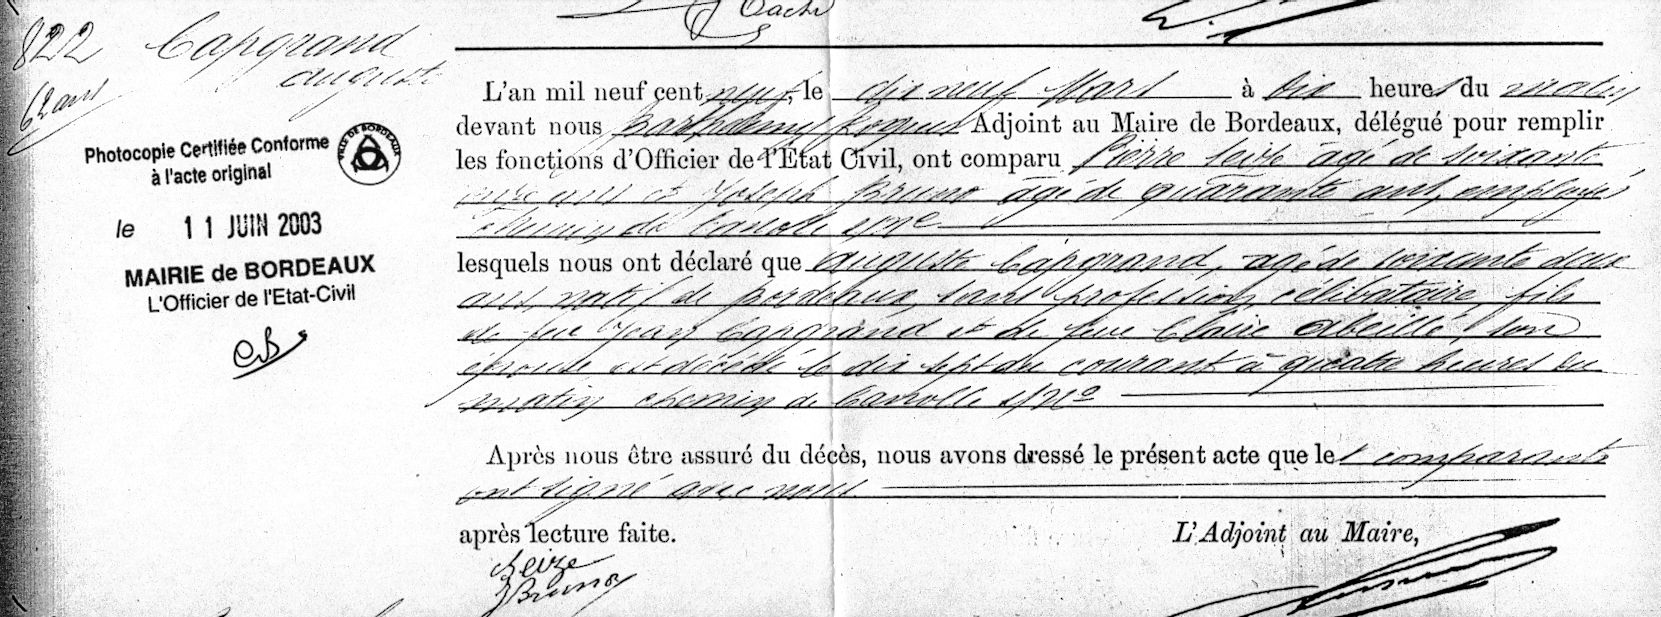 822 Capgrand
auguste
62 ans
Photocopie Certifiée Conforme
à l'acte original
VILLE DE BORDEAUX
le 11 JUIN 2003
MAIRIE de BORDEAUX
L'Officier de l'Etat-Civil
L'an mil neuf cent neuf, le dix neuf Mars à dix heures du matin
devant nous Barthélemy Adjoint au Maire de Bordeaux, délégué pour remplir
les fonctions d'Officier de l'Etat Civil, ont comparu Pierre Seize âgé de soixante
onze ans et Joseph Bruno âgé de quarante ans, employés
chemin de Canolle s/n°
lesquels nous ont déclaré que auguste Capgrand, âgé de soixante deux
ans, natif de bordeaux, sans profession, célibataire, fils
de feu Jean Capgrand et de feue Claire abeillé, son
épouse est décédé le dix sept du courant à quatre heures du
matin chemin de Canolle s/n°
Après nous être assuré du décès, nous avons dressé le présent acte que les comparants
ont signé avec nous
après lecture faite. L'Adjoint au Maire,
Seize
J Bruno